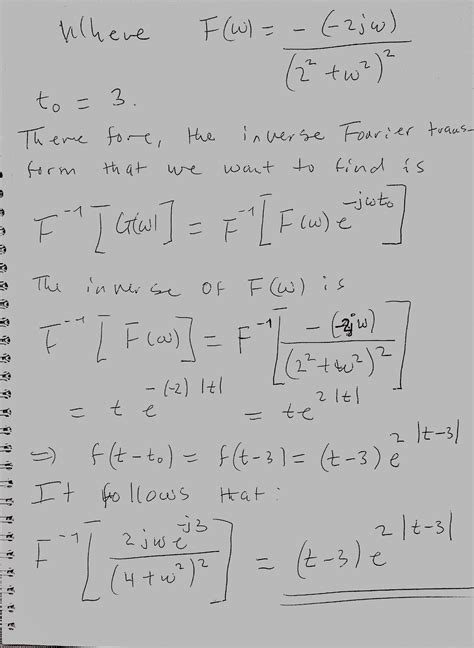 Where F(ω) = -(-2jω) / (2² + ω²)²
t₀ = 3.
Therefore, the inverse Fourier trans-
form that we want to find is
F⁻¹[G(ω)] = F⁻¹[F(ω) e^(-jωt₀)]
The inverse of F(ω) is
F⁻¹[F(ω)] = F⁻¹[-(-2jω) / (2² + ω²)²]
= t e^(-(-2)|t|) = te^(2|t|)
⇒ f(t-t₀) = f(t-3) = (t-3) e^(2|t-3|)
It follows that:
F⁻¹[2jωe^(-j3) / (4+ω²)²] = (t-3) e^(2|t-3|)